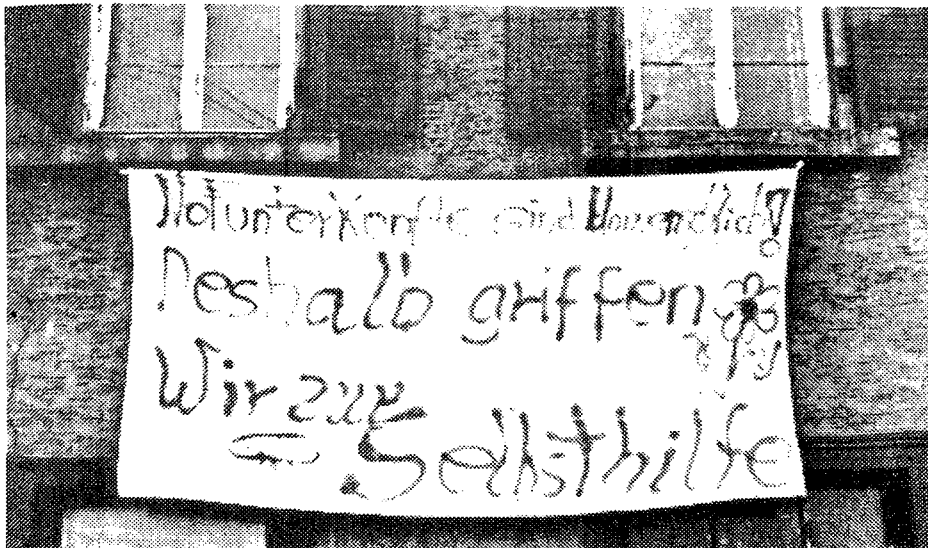 Notunterkünfte sind
Deshalb griffen
Wir zur
Selbsthilfe